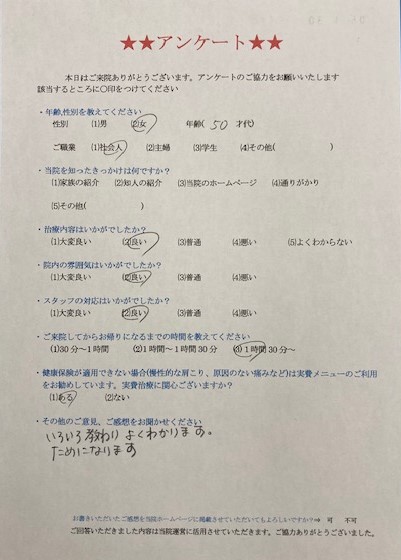 ★★アンケート★★
本日はご来院ありがとうございます。アンケートのご協力をお願いいたします
該当するところに〇印をつけてください
・年齢,性別を教えてください
性別 (1)男 (2)女 年齢( 50 才代)
ご職業 (1)社会人 (2)主婦 (3)学生 (4)その他( )
・当院を知ったきっかけは何ですか?
(1)家族の紹介 (2)知人の紹介 (3)当院のホームページ (4)通りがかり
(5)その他( )
・治療内容はいかがでしたか?
(1)大変良い (2)良い (3)普通 (4)悪い (5)よくわからない
・院内の雰囲気はいかがでしたか?
(1)大変良い (2)良い (3)普通 (4)悪い
・スタッフの対応はいかがでしたか?
(1)大変良い (2)良い (3)普通 (4)悪い
・ご来院してからお帰りになるまでの時間を教えてください
(1)30分~1時間 (2)1時間~1時間30分 (3)1時間30分~
・健康保険が適用できない場合(慢性的な肩こり、原因のない痛みなど)は実費メニューのご利用
をお勧めしています。実費治療に関心ございますか?
(1)ある (2)ない
・その他のご意見、ご感想をお聞かせください
いろいろ教わり よくわかります。
ためになります
お書きいただいたご感想を当院ホームページに掲載させていただいてもよろしいですか?⇒ 可 不可
ご回答いただきました内容は当院運営に活用させていただきます。ご協力ありがとうございました。